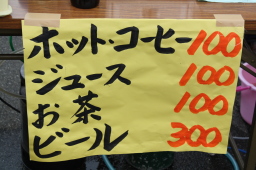 ホット・コーヒー100
ジュース 100
お茶 100
ビール 300